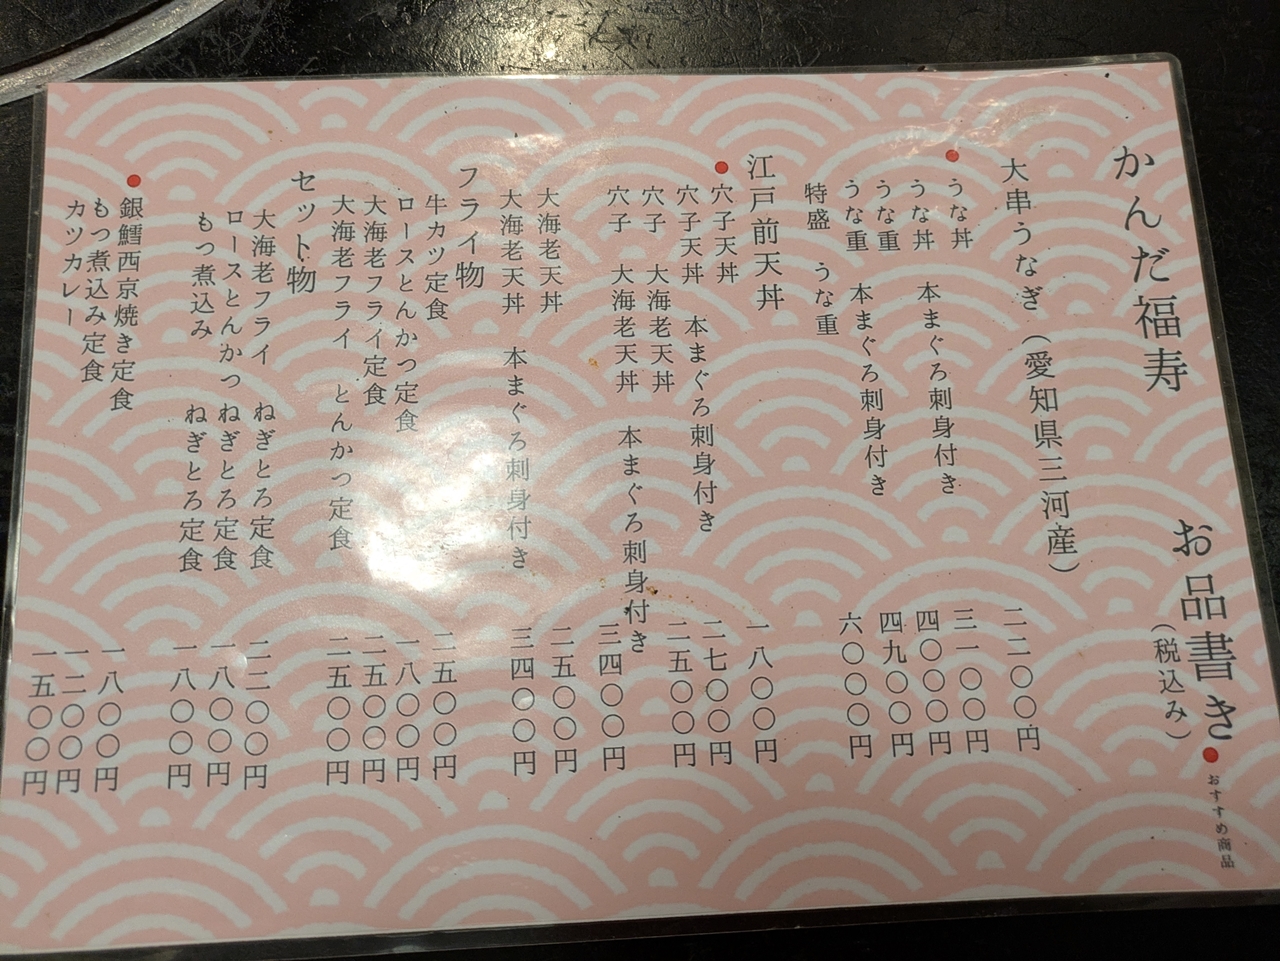 かんだ福寿 お品書き
(税込み)
●おすすめ商品
大串うなぎ(愛知県三河産)
●うな丼 二二〇〇円
うな丼 本まぐろ刺身付き 三一〇〇円
うな重 四〇〇〇円
うな重 本まぐろ刺身付き 四九〇〇円
特盛 うな重 六〇〇〇円
江戸前天丼
●穴子天丼 一八〇〇円
穴子天丼 本まぐろ刺身付き 二七〇〇円
穴子 大海老天丼 二五〇〇円
穴子 大海老天丼 本まぐろ刺身付き 三四〇〇円
大海老天丼 二五〇〇円
大海老天丼 本まぐろ刺身付き 三四〇〇円
フライ物
牛カツ定食 二五〇〇円
ロースとんかつ定食 一八〇〇円
大海老フライ定食 二五〇〇円
大海老フライ とんかつ定食 二五〇〇円
セット物
大海老フライ ねぎとろ定食 二二〇〇円
ロースとんかつ ねぎとろ定食 一八〇〇円
もつ煮込み ねぎとろ定食 一八〇〇円
●銀鱈西京焼き定食 一八〇〇円
もつ煮込み定食 一二〇〇円
カツカレー 一五〇〇円